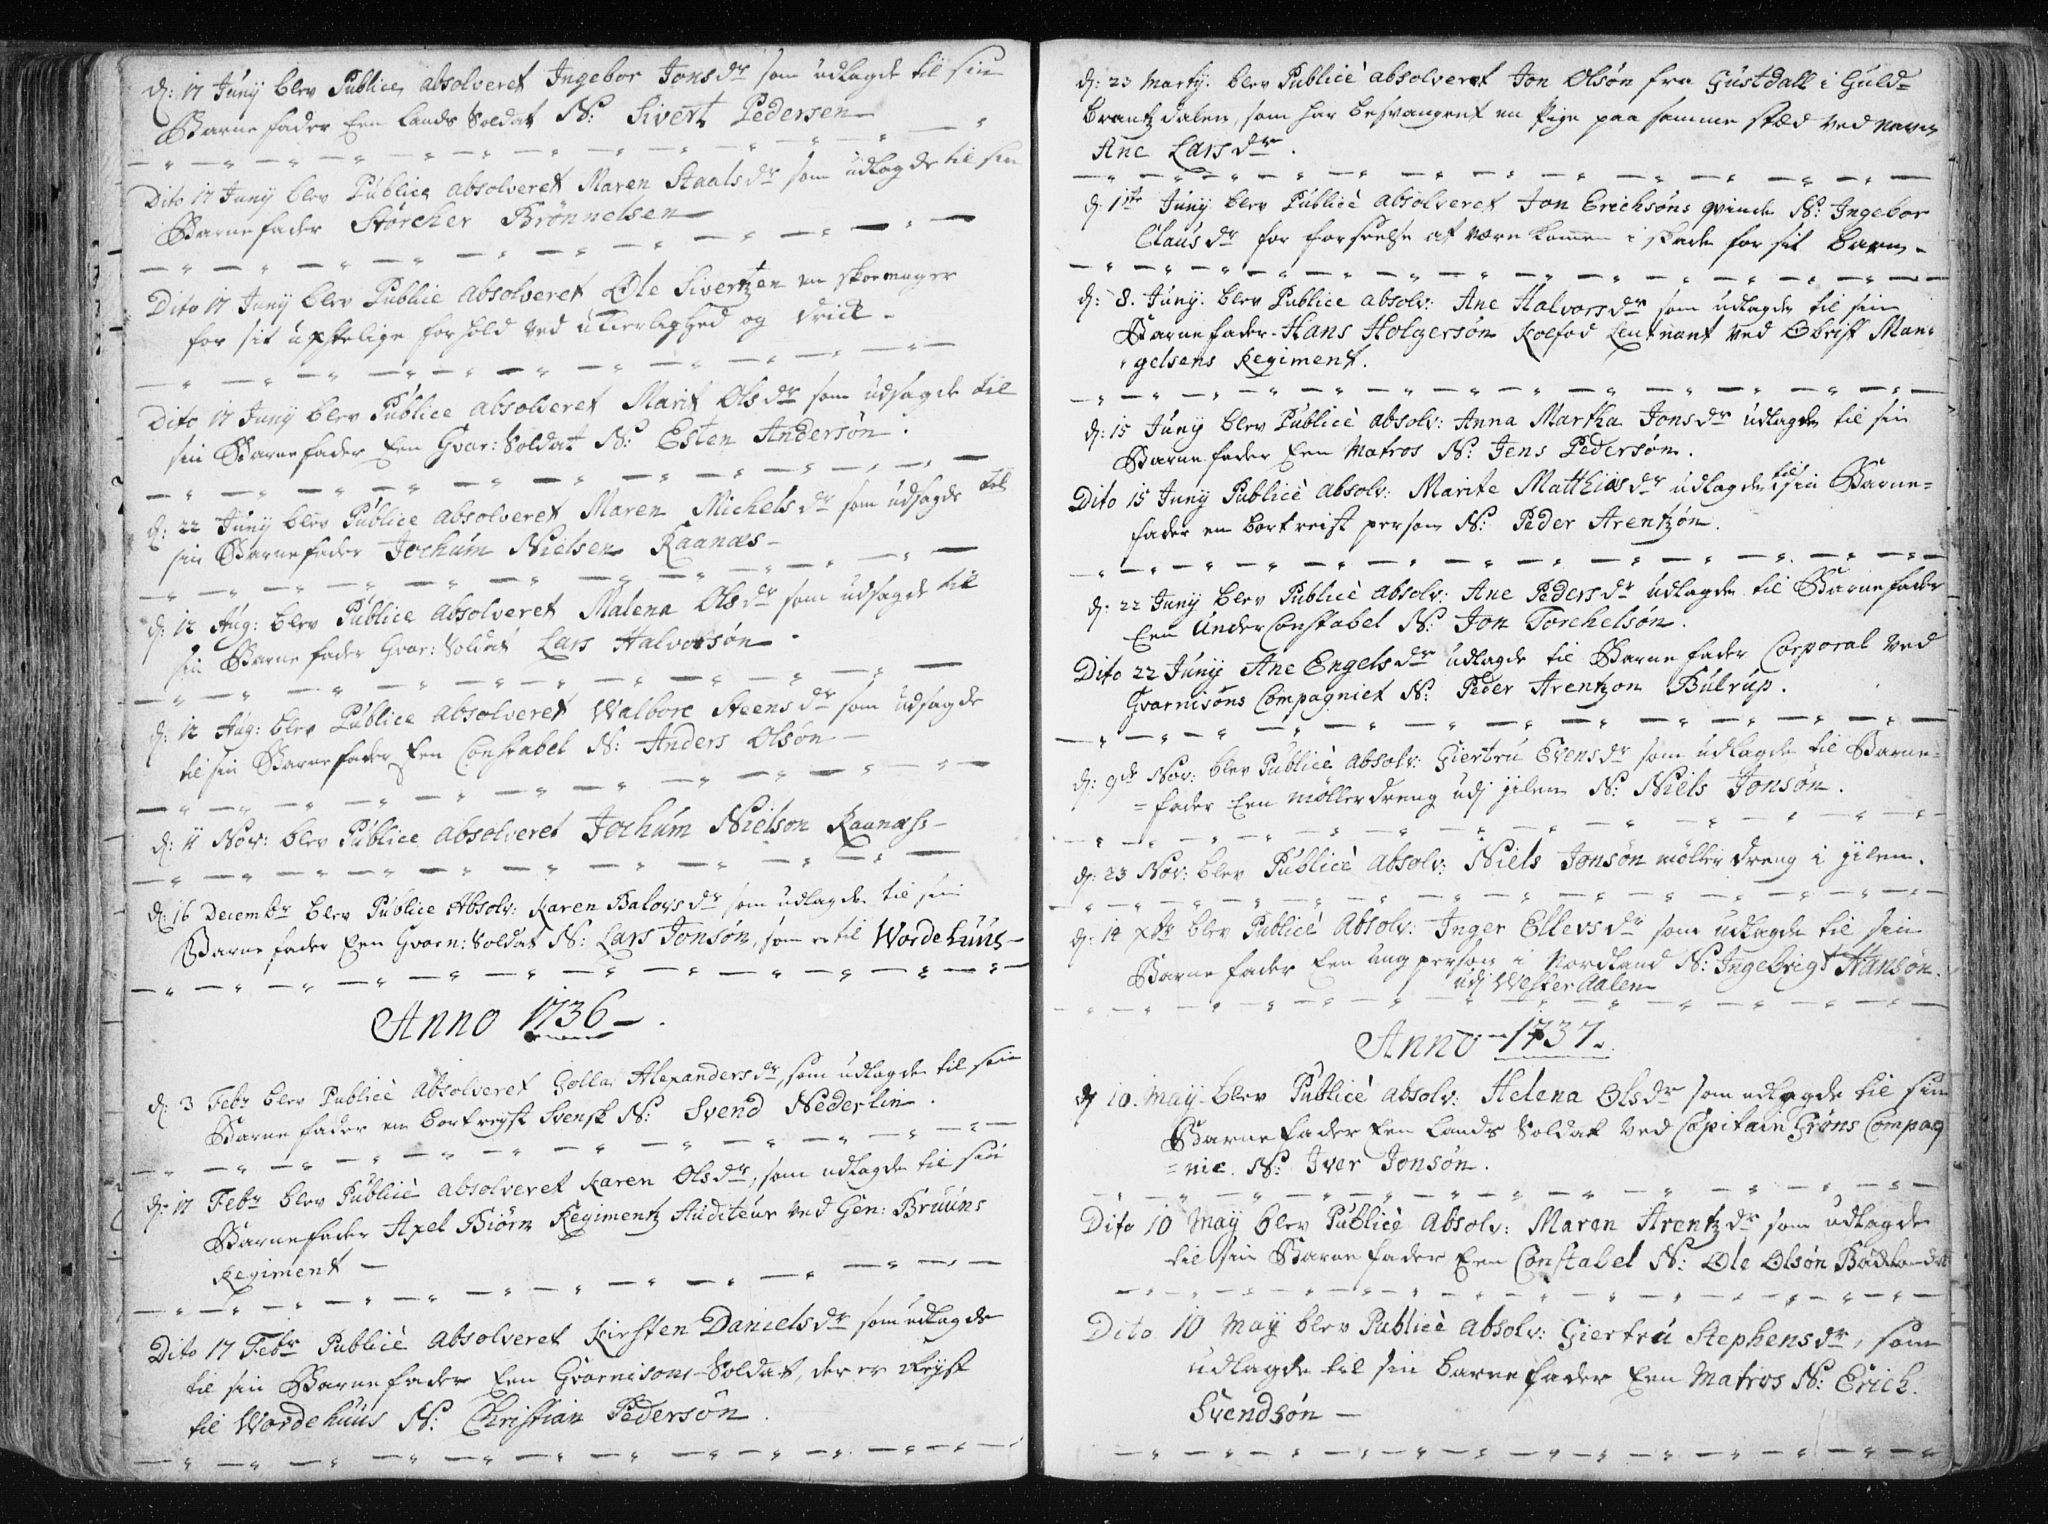 d: 17 Juny blev Publice absolveret Ingebor Jonsdr som udlagde til sin
Barnefader Een Lands Soldat N: Sivert Pedersen
Dito 17 Juny blev Publice absolveret Maren Staalsdr som udlagde til sin
Barnefader Störcher Brönnelsen
Dito 17 Juny blev Publice absolveret Ole Sivertzen en skoemager
for sit forhold ved og drick
Dito 17 Juny blev Publice absolveret Marit Olsdr som udsagde til
sin Barnefader Een Gvar: Soldat N: Esten Andersøn.
d: 22 Juny blev Publice absolveret Maren Michelsdr som udsagde til
sin Barnefader Jochum Nielsen Raanæs
d: 12 Aug: blev Publice absolveret Malena Olsdr som udsagde til
sin Barnefader Gvar: Soldat Lars Halvorsøn
d: 12 Aug: blev Publice absolveret Walbore Steensdr som udsagde
til sin Barnefader Een Constabel N: Anders Olsøn
d: 11 Nov: blev Publice absolveret Jochum Nielson Raanæss
d: 16 Decembr blev Publice Absolv: Karen Balorsdr som udlagde til sin
Barnefader Een Gvarn: Soldat N: Lars Jonsøn, som er til Wordehuus
Anno 1736
d: 3 Febr blev Publice absolveret Golla Alexandersdr, som udlagde til sin
Barnefader en bortreyst Svensk N: Svend Nederlin.
d: 17 Febr blev Publice absolveret Karen Olsdr, som udlagde til sin
Barnefader Axel Biørn Regimentz Auditeur ved Gen: Bruuns
Regiment
Dito 17 Febr Publice absolveret Kirsten Danielsdr som udlagde
til sin Barnefader Een Gvarnisons-Soldat, der er reyst
til Wordehuus N: Christian Pedersøn.
d: 23 Marty. blev Publice absolveret Jon Olsøn fra Gustdall i Guld-
brantzdalen, som har besvangret en Pige paa samme stæd ved navn
Ane Larsdr.
d: 1te Juny blev Publice absolveret Jon Erichsøns qvinde N: Ingebor
Clausdr for forseelse at være kommen i skade for sit barn.
d: 8. Juny. blev Publice absolv: Ane Halvorsdr som udlagde til sin
Barnefader Hans Holgersøn Koefod Leutnant ved Obrist Man-
gelsens Regiment.
d: 15 Juny blev Publice absolv: Anna Martha Jonsdr udlagde til sin
Barnefader Een Matros N: Jens Pedersøn.
Dito 15 Juny Publice absolv: Marite Matthiasdr udlagde til sin Barne-
fader en bortreist person N: Peder Arentzøn.
d: 22 Juny blev Publice absolv: Ane Pedersdr udlagde til Barnefader
Een UnderConstabel N: Jon Torchelsøn.
Dito 22 Juny Ane Engelsdr udlagde til Barnefader Corporal ved
Gvarnisons Compagniet N: Peder Arentzon Bulrup.
d: 9de Nov: blev Publice absolv: Giertru Evensdr som udlagde til Barne-
fader Een møllerdreng udj jilen N: Niels Jonsøn.
d: 23 Nov: blev Publice absolv: Niels Jonsøn møller dreng i jilen.
d: 14 Xbr blev Publice Absolv: Inger Ellevsdr som udlagde til sin
Barnefader Een ung person i Nordland N: Ingebrigt Hansøn.
udj WesterAalen
Anno 1737.
d 10. May blev Publice absolv: Helena Olsdr som udlagde til sin
Barnefader Een Lands Soldat ved Capitain Grøns Compag
nie. N: Iver Jonsøn.
Dito 10 May blev Publice Absolv: Maren Arentzdr som udlagde
til sin Barnefader Een Constabel N: Ole Olsøn
Dito 10 May blev Publice absolv: Giertru Stephensdr, som
udlagde til sin barnefader Een Matros N: Erich.
Svendsøn